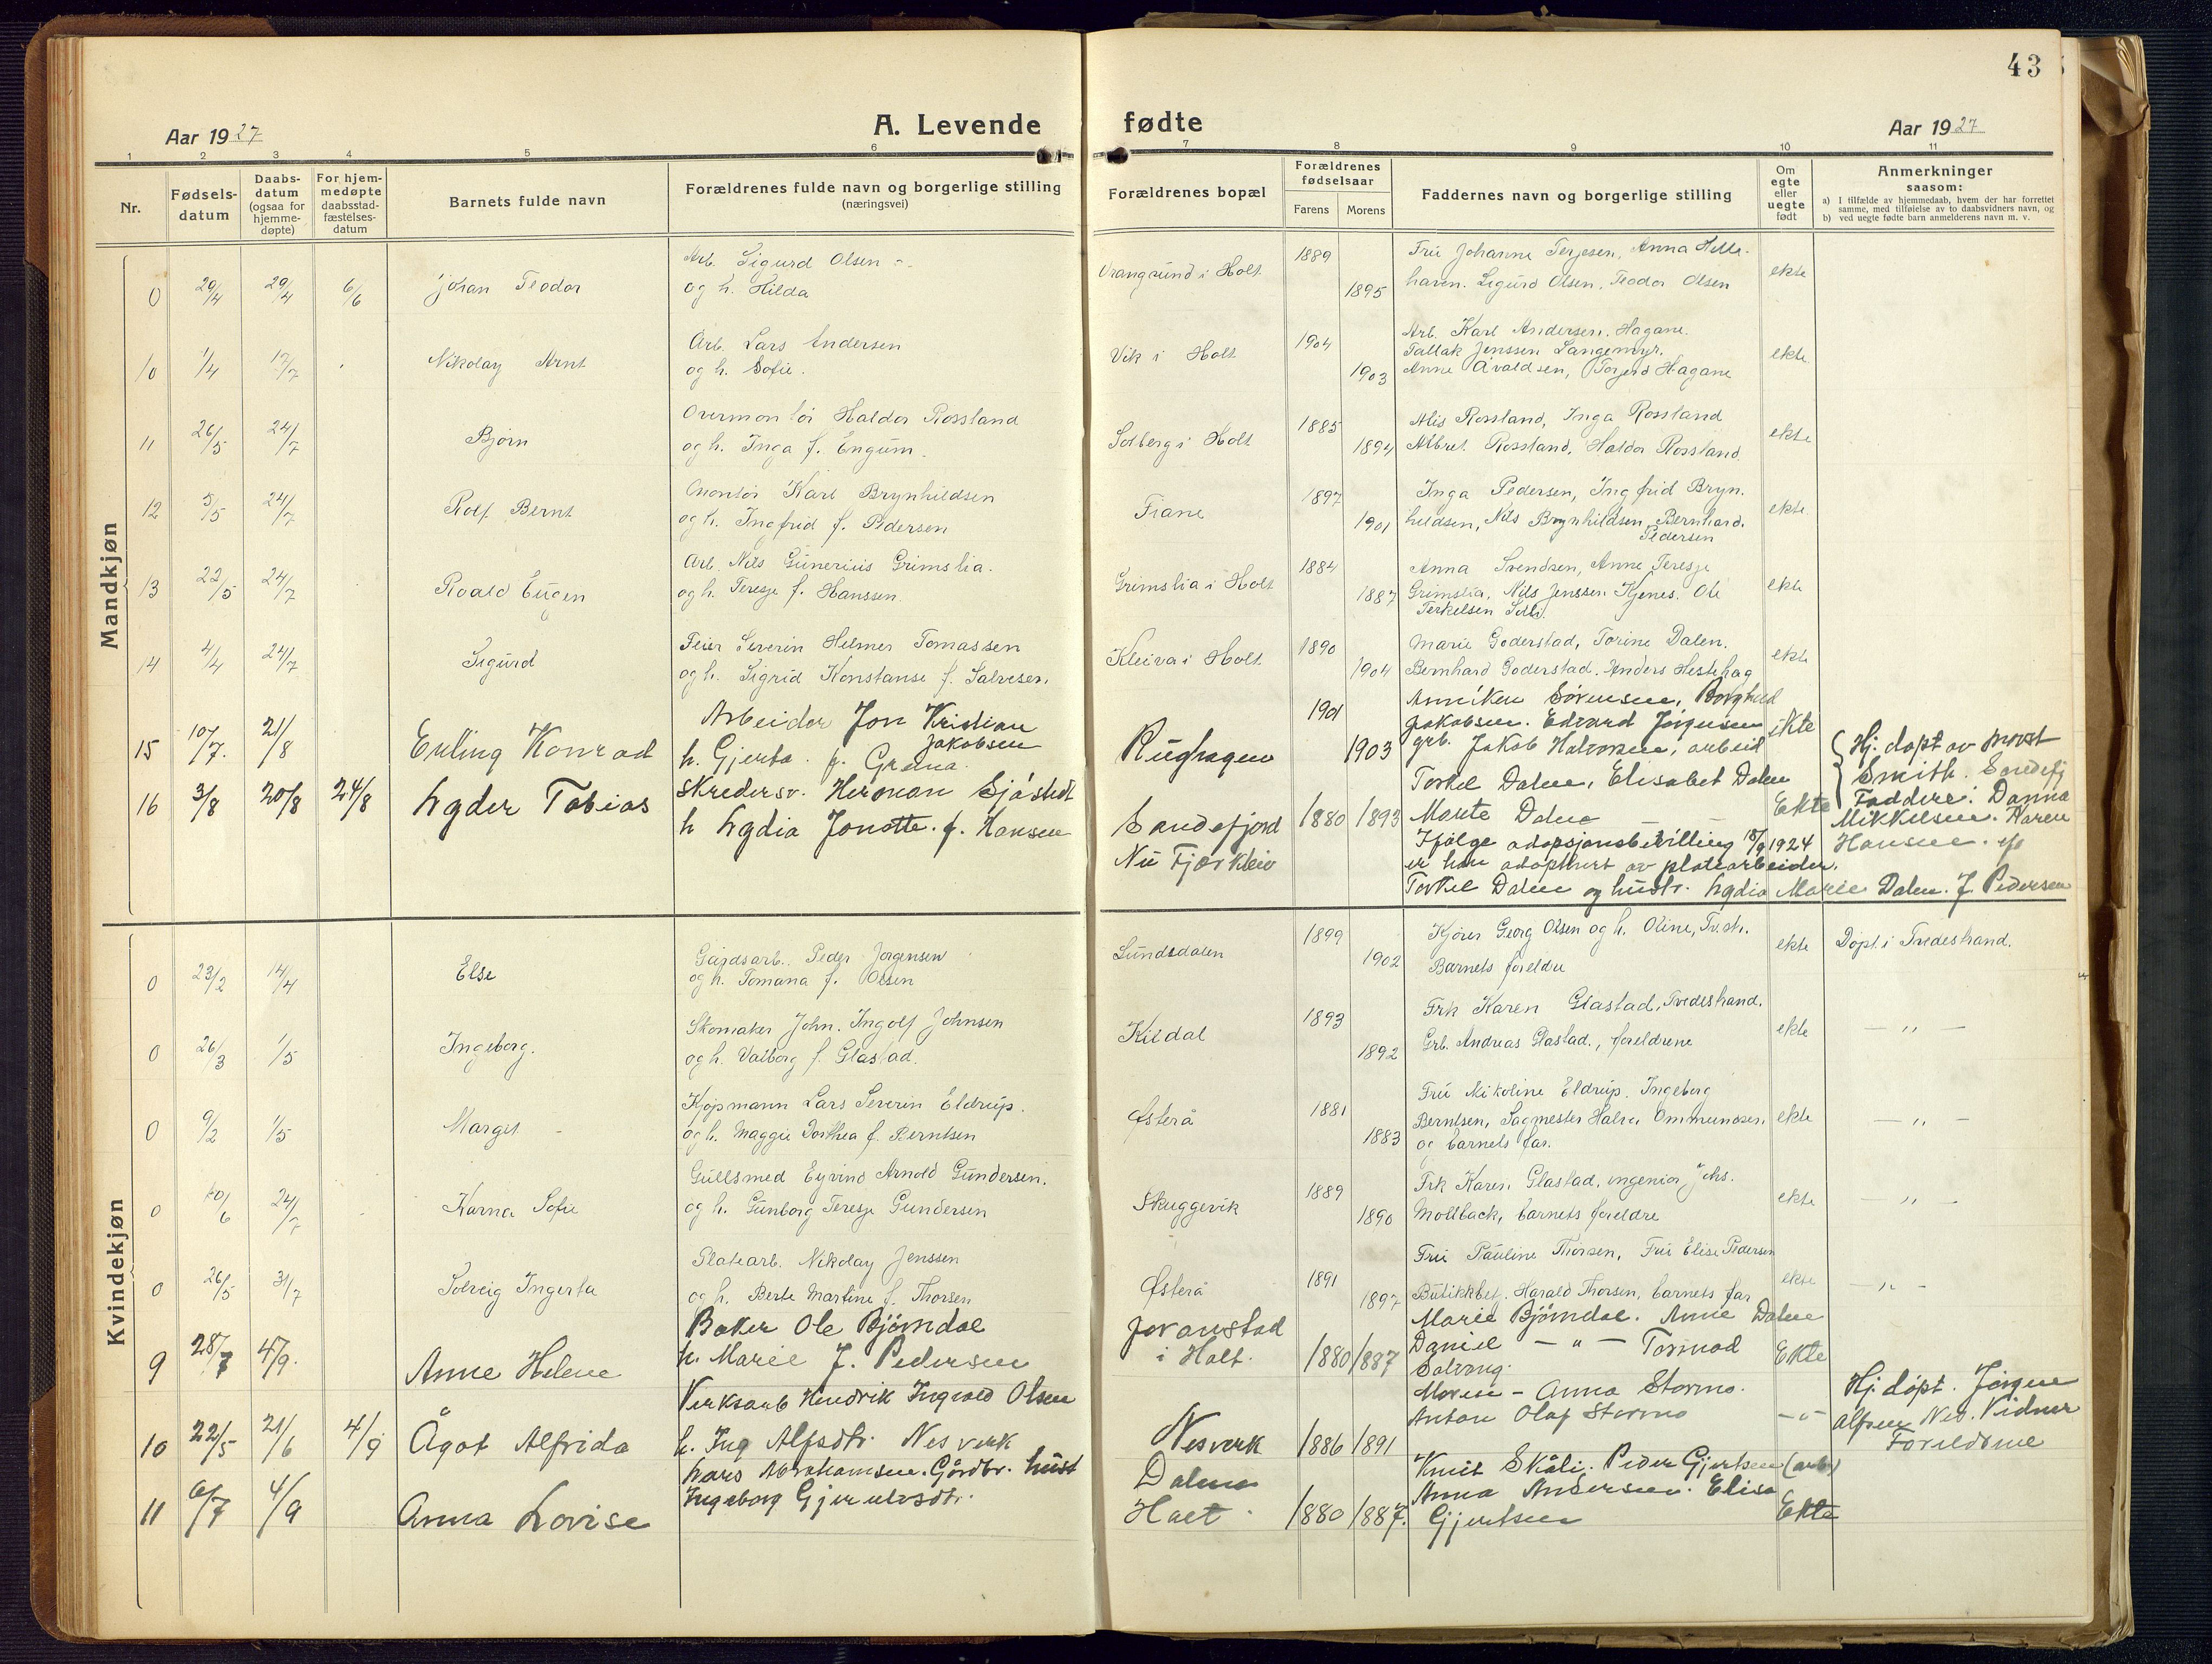 43
Aar 1927
A. Levende fødte
Aar 1927
1 2 3 4 5 6 7 8 9 10 11
Nr.
Fødsels-
datum
Daabs-
datum
(ogsaa for
hjemme-
døpte)
For hjem-
medøpte
daabsstad-
fæstelses-
datum
Barnets fulde navn
Forældrenes fulde navn og borgerlige stilling
(næringsvei)
Forældrenes bopæl
Forældrenes
fødselsaar
Farens Morens
Faddernes navn og borgerlige stilling
Om
egte
eller
uegte
født
Anmerkninger
saasom:
a) I tilfælde av hjemmedaab, hvem der har forrettet
samme, med tilføielse av to daabsvidners navn, og
b) ved uegte fødte barn anmelderens navn m. v.
Mandkjøn
0 29/4 29/4 6/6 Johan Teodor
Arb. Sigurd Olsen
og h. Hilda
Vrangsund i Holt 1889 1895
Fru Johanne Terjesen, Anna
Sigurd Olsen, Teodor Olsen
ekte
10 1/4 17/7 Nikolay Arnt
Arb. Lars Andersen
og h. Sofie.
Vik i Holt 1904 1903
Arb. Karl Andersen, Hagane.
Tallak Jenssen Langemyr.
Anne Avaldsen, Torjerd Hagane
ekte
11 26/5 24/7 Bjørn
Overmontør Haldor Rossland
og h. Inga f. Engum.
Solberg i Holt 1885 1894
Alis Rossland, Inga Rossland
Albret Rossland, Haldor Rossland
ekte
12 5/5 24/7 Rolf Bernt
Montør Karl Brynhildsen
og h. Ingfrid f. Pedersen
Fiane 1897 1901
Inga Pedersen, Ingfrid Bryn-
hildsen, Nils Brynhildsen, Bernhard
Pedersen
ekte
13 22/5 24/7 Roald Eugen
Arb. Nils Gunerius Grimslia.
og h. Teresje f. Hanssen.
Grimslia i Holt 1884 1887
Anna Svendsen, Anne Teresje
Grimslia, Nils Jenssen Kjenes. Ole
Terkelsen
ekte
14 4/4 24/7 Sigurd
Feier Severin Helmer Tomassen
og h. Sigrid Konstanse f. Salvesen.
Kleiva i Holt 1890 1904
Marie Goderstad, Torine Dalen.
Bernhard Goderstad. Anders Hestehag
ekte
15 10/7. 21/8 Erling Konrad
Arbeider Jon Kristian
Jakobsen
h. Gjerta. f. Grana.
Rughagen 1901 1903
Anniken Sørensen, Borghild
Jakobsen. Edvard Jørgensen
grb. Jakob Halvorsen, arbeid
ekte
16 3/8 20/8 24/8 Lyder Tobias
Skredersv. Herman Sjøstedt
h Lydia Jonette. f. Hansen
Sandefjord
Nu Fjærkleiv
1880 1893
Torkel Dalen, Elisabet Dalen
Marte Dalen
Ekte
Hj. døpt av provst
Smith. Sandefj
Faddere: Danna
Mikkelsen. Karen
Hansen.
Ifølge adopsjonsbevilling 18/9 1924
er han adoptert av platearbeider.
Torkel Dalen og hustr. Lydia Marie Dalen. f. Pedersen
Kvindekjøn
0 23/2 14/4 Else
Gårdsarb. Peder Jørgensen
og h. Tomana f. Olsen
Lundsdalen 1899 1902
Kjører Georg Olsen og h. Oline, Tv.str.
Barnets foreldre
ekte
Døpt i Tvedestrand.
0 26/3 1/5 Ingeborg.
Skomaker John. Ingolf Johnsen
og h. Valborg f. Glastad.
Kildal 1893 1892
Frk Karen Glastad, Tvedestrand.
Grb. Andreas Glastad., foreldrene
ekte
— " —
0 9/2 1/5 Margit
Kjøpmann Lars Severin Eldrup.
og h. Maggie Dorthea f. Berntsen
Østerå 1881 1883
Fru Nikoline Eldrup. Ingeborg
Berntsen, Sagmester Halvor Ommundsen
og barnets far.
ekte
— " —
0 10/6 24/7 Karna Sofie
Gullsmed Eyvind Arnold Gundersen.
og h. Gunborg Teresje Gundersen
Skuggevik 1889 1890
Frk Karen Glastad, ingeniør Johs.
Mollback, barnets foreldre
ekte
— " —
0 26/5 31/7 Solveig Ingerta
Platearb. Nikolay Jenssen
og h. Berte Martine f. Thorsen
Østerå 1891 1897
Fru Pauline Thorsen, Fru Elise Pedersen
Butikkbetj. Harald Thorsen, barnets far
ekte
— " —
9 28/7 4/9. Anne Helene
Baker Ole Bjørndal
h. Marie f. Pedersen
Jovanstad
i Holt. 1880 1887
Marie Bjørndal. Anne Dalen
Daniel — " — Tormod
Ekte
10 22/5 21/6 4/9 Ågot Alfrida
Verksarb Hendrik Ingvald Olsen
h. Ing Alfsdtr. Nesverk
Nesverk 1886 1891
Anna Stormo.
Anton Olaf Stormo
— " —
Hj. døpt. Jørgen
Alfsen Nes. Vidner
Foreldrene
11 6/7 4/9 Anna Lovise
Lars Abrahamsen. Gårdbr. hust
Ingeborg Gjerulvsdtr.
Dalene
Holt 1880 1887.
Knut Skåli. Peder Gjertsen (arb)
Anna Andersen. Elisa
Gjertsen
Ekte